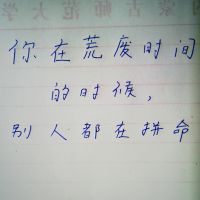 你在荒废时间
的时候，
别人都在拼命